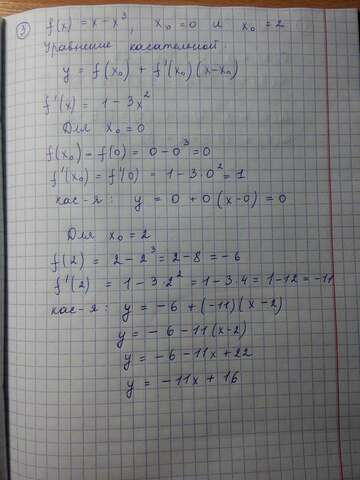 ③ f(x) = x - x³, x₀ = 0 и x₀ = 2
Уравнение касательной:
y = f(x₀) + f'(x₀)(x-x₀)
f'(x) = 1 - 3x²
Для x₀ = 0
f(x₀) = f(0) = 0 - 0³ = 0
f'(x₀) = f'(0) = 1 - 3·0² = 1
кас-я: y = 0 + 0(x-0) = 0
Для x₀ = 2
f(2) = 2 - 2³ = 2 - 8 = -6
f'(2) = 1 - 3·2² = 1 - 3·4 = 1 - 12 = -11
кас-я: y = -6 + (-11)(x - 2)
y = -6 - 11(x-2)
y = -6 - 11x + 22
y = -11x + 16